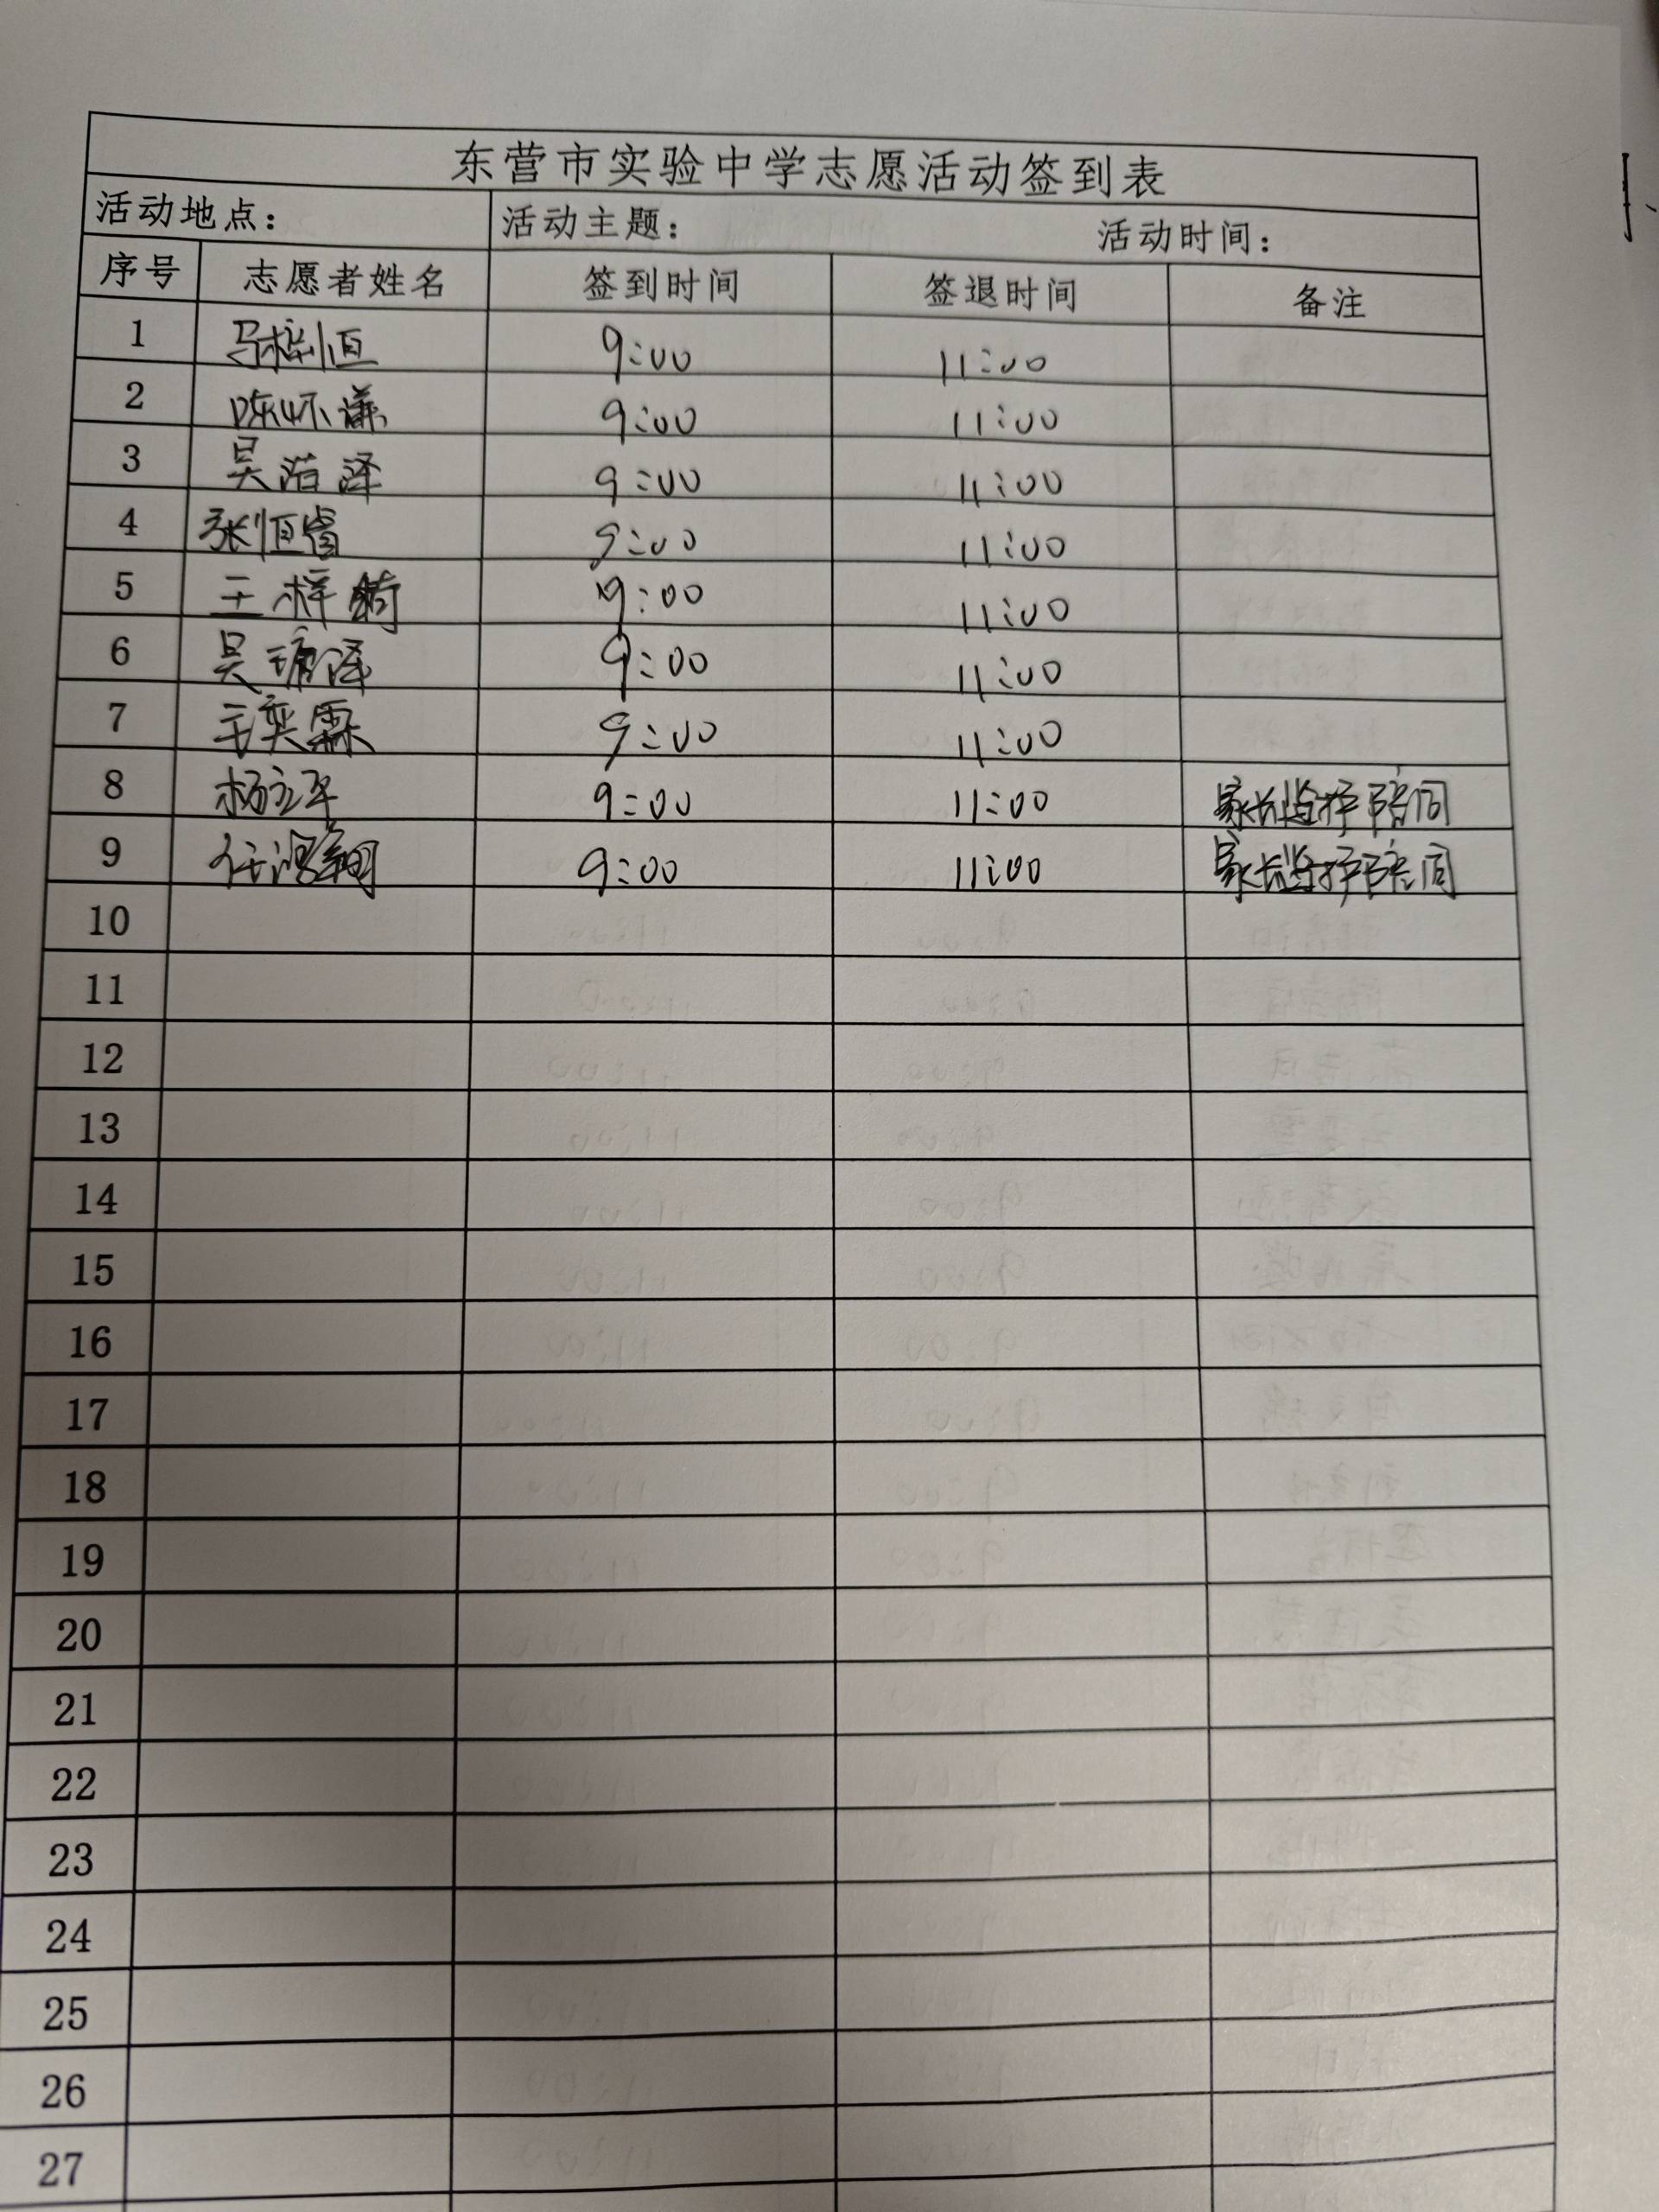 东营市实验中学志愿活动签到表
活动地点: 活动主题: 活动时间:
序号 志愿者姓名 签到时间 签退时间 备注
1 马 恒 9:00 11:00
2 陈怀谦 9:00 11:00
3 吴浩泽 9:00 11:00
4 张恒睿 9:00 11:00
5 王梓 9:00 11:00
6 吴 泽 9:00 11:00
7 王奕霖 9:00 11:00
8 杨立平 9:00 11:00 家长监护陪同
9 任鸿翔 9:00 11:00 家长监护陪同
10
11
12
13
14
15
16
17
18
19
20
21
22
23
24
25
26
27